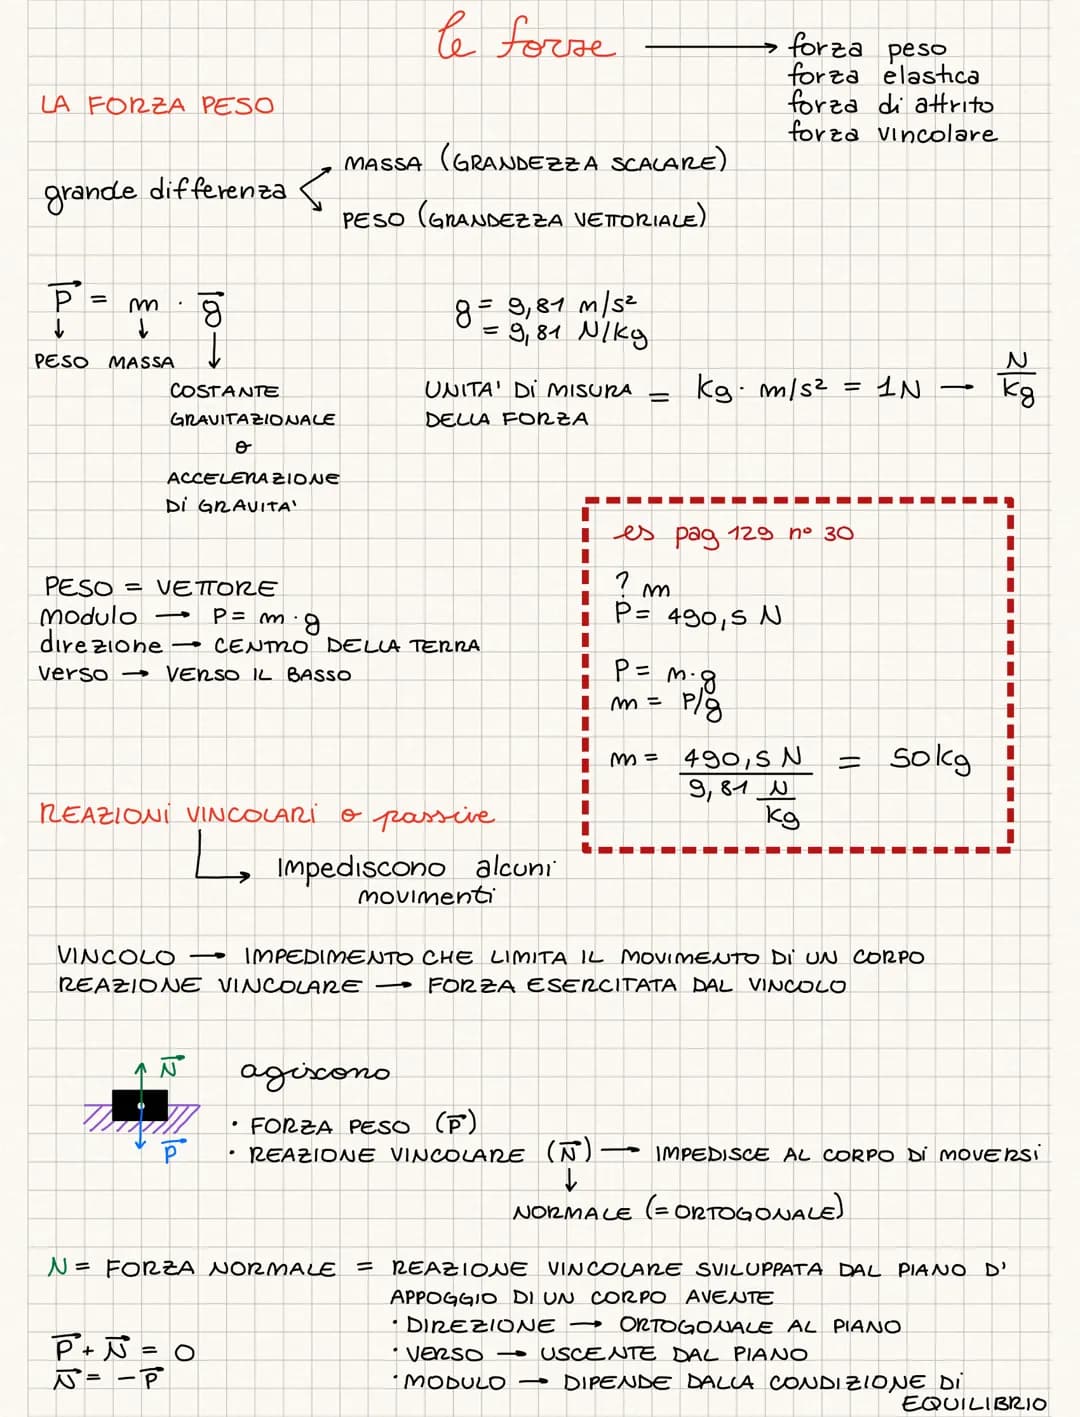 le forze → forza peso
forza elastica
forza di attrito
forza vincolare
LA FORZA PESO
grande differenza
MASSA (GRANDEZZA SCALARE)
PESO (GRANDEZZA VETTORIALE)
P = m · g
PESO MASSA
COSTANTE
GRAVITAZIONALE
o
ACCELERAZIONE
Di GRAVITA'
g = 9,81 m/s²
= 9,81 N/kg
UNITA' Di MISURA = kg · m/s² = 1N → N/kg
DELLA FORZA
es pag 129 n° 30
? m
P = 490,5 N
P = m·g
m = P/g
m = 490,5 N / 9,81 N/kg = 50kg
PESO = VETTORE
modulo → P = m·g
direzione → CENTRO DELLA TERRA
verso → VERSO IL BASSO
REAZIONi VINCOLARi o passive
Impediscono alcuni
movimenti
VINCOLO → IMPEDIMENTO CHE LIMITA IL MOVIMENTO Di UN CORPO
REAZIONE VINCOLARE → FORZA ESERCITATA DAL VINCOLO
N
P
agiscono
· FORZA PESO (P)
· REAZIONE VINCOLARE (N) → IMPEDISCE AL CORPO Di MOVERSi
NORMALE (= ORTOGONALE)
N = FORZA NORMALE = REAZIONE VINCOLARE SVILUPPATA DAL PIANO D'
APPOGGIO DI UN CORPO AVENTE
· DIREZIONE → ORTOGONALE AL PIANO
· VERSO → USCENTE DAL PIANO
· MODULO → DIPENDE DALLA CONDIZIONE Di
EQUILIBRIO
P + N = 0
N = -P